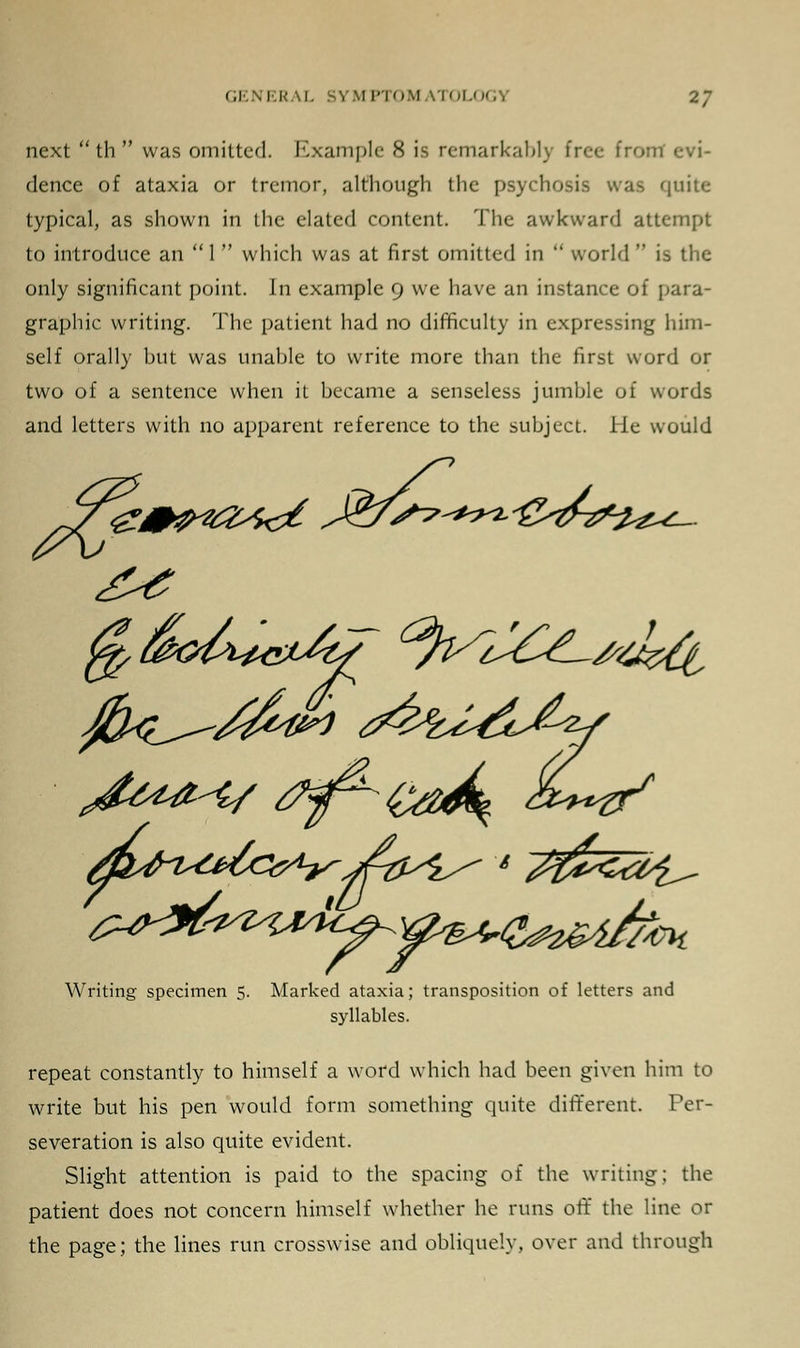 GENERAL SYMPTOMATOLOGY 27
next “ th ” was omitted. Example 8 is remarkably free from evi-
dence of ataxia or tremor, although the psychosis was quite
typical, as shown in the elated content. The awkward attempt
to introduce an “ l ” which was at first omitted in “ world ” is the
only significant point. In example 9 we have an instance of para-
graphic writing. The patient had no difficulty in expressing him-
self orally but was unable to write more than the first word or
two of a sentence when it became a senseless jumble of words
and letters with no apparent reference to the subject. He would
of
Writing specimen 5. Marked ataxia; transposition of letters and
syllables.
repeat constantly to himself a word which had been given him to
write but his pen would form something quite different. Per-
severation is also quite evident.
Slight attention is paid to the spacing of the writing; the
patient does not concern himself whether he runs off the line or
the page; the lines run crosswise and obliquely, over and through